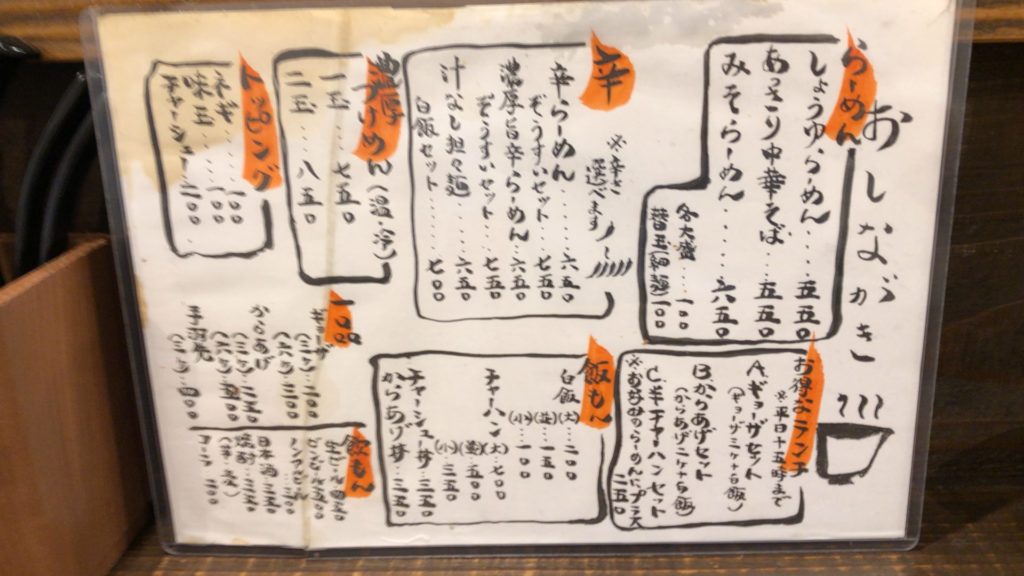 おしながき
らーめん
しょうゆらーめん‥‥五五〇
あっさり中華そば‥五五〇
みそらーめん‥‥六五〇
各大盛‥‥一〇〇
辛
※辛さ選べます
辛らーめん‥‥六五〇
ぞうすいセット‥‥七五〇
濃厚旨辛らーめん‥‥六五〇
ぞうすいセット‥‥七五〇
汁なし担々麺‥‥六五〇
白飯セット‥‥七〇〇
濃厚つけめん(温・冷)
一玉‥‥七五〇
二玉‥‥八五〇
トッピング
ネギ‥‥一〇〇
味玉‥‥一〇〇
チャーシュー‥二〇〇
お得なランチ
※平日十五時まで
Aギョーザセット
(ギョーザ三ケ+白飯)
Bからあげセット
(からあげ二ケ+白飯)
C半チャーハンセット
※お好みのらーめんにプラス二五〇
飯もん
白飯(大)‥二〇〇
(並)‥一五〇
(小)‥一〇〇
チャーハン(大)‥七〇〇
(並)‥五〇〇
(小)‥三五〇
チャーシュー丼‥三五〇
からあげ丼‥三五〇
一品
ギョーザ
からあげ
手羽先
飲もん
生ビール
日本酒
焼酎
コーラ